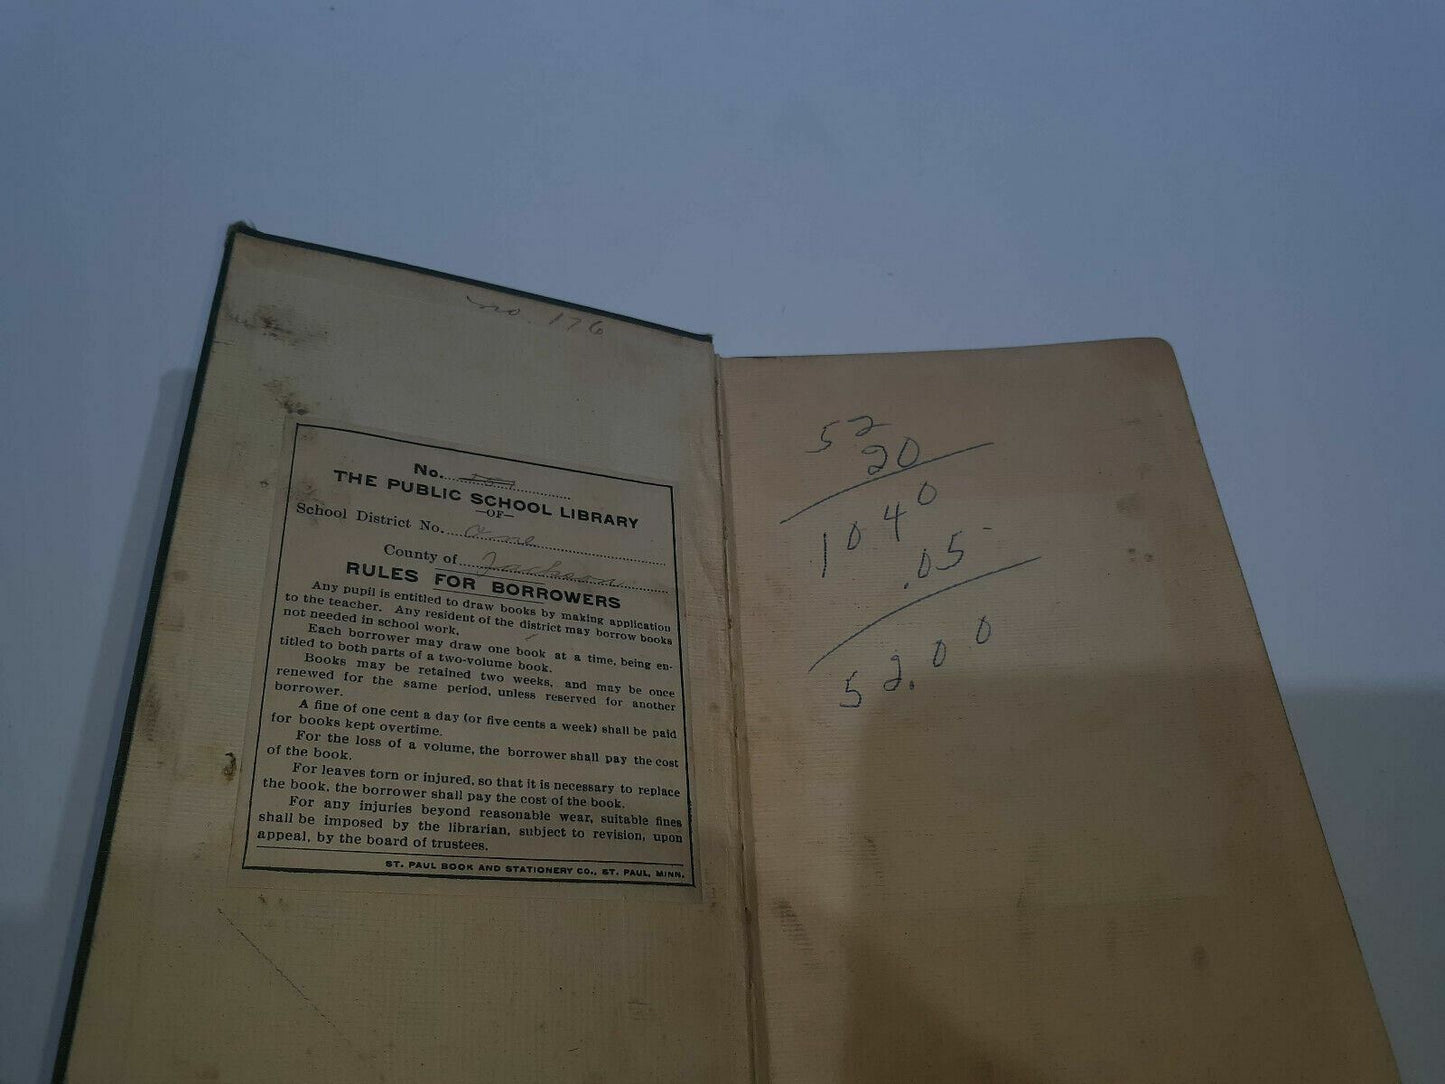 no. 176
No.
THE PUBLIC SCHOOL LIBRARY
—OF—
School District No. One
County of Jackson
RULES FOR BORROWERS
Any pupil is entitled to draw books by making application
to the teacher. Any resident of the district may borrow books
not needed in school work.
Each borrower may draw one book at a time, being en-
titled to both parts of a two-volume book.
Books may be retained two weeks, and may be once
renewed for the same period, unless reserved for another
borrower.
A fine of one cent a day (or five cents a week) shall be paid
for books kept overtime.
For the loss of a volume, the borrower shall pay the cost
of the book.
For leaves torn or injured, so that it is necessary to replace
the book, the borrower shall pay the cost of the book.
For any injuries beyond reasonable wear, suitable fines
shall be imposed by the librarian, subject to revision, upon
appeal, by the board of trustees.
ST. PAUL BOOK AND STATIONERY CO., ST. PAUL, MINN.
52
20
1040
.05
52.00